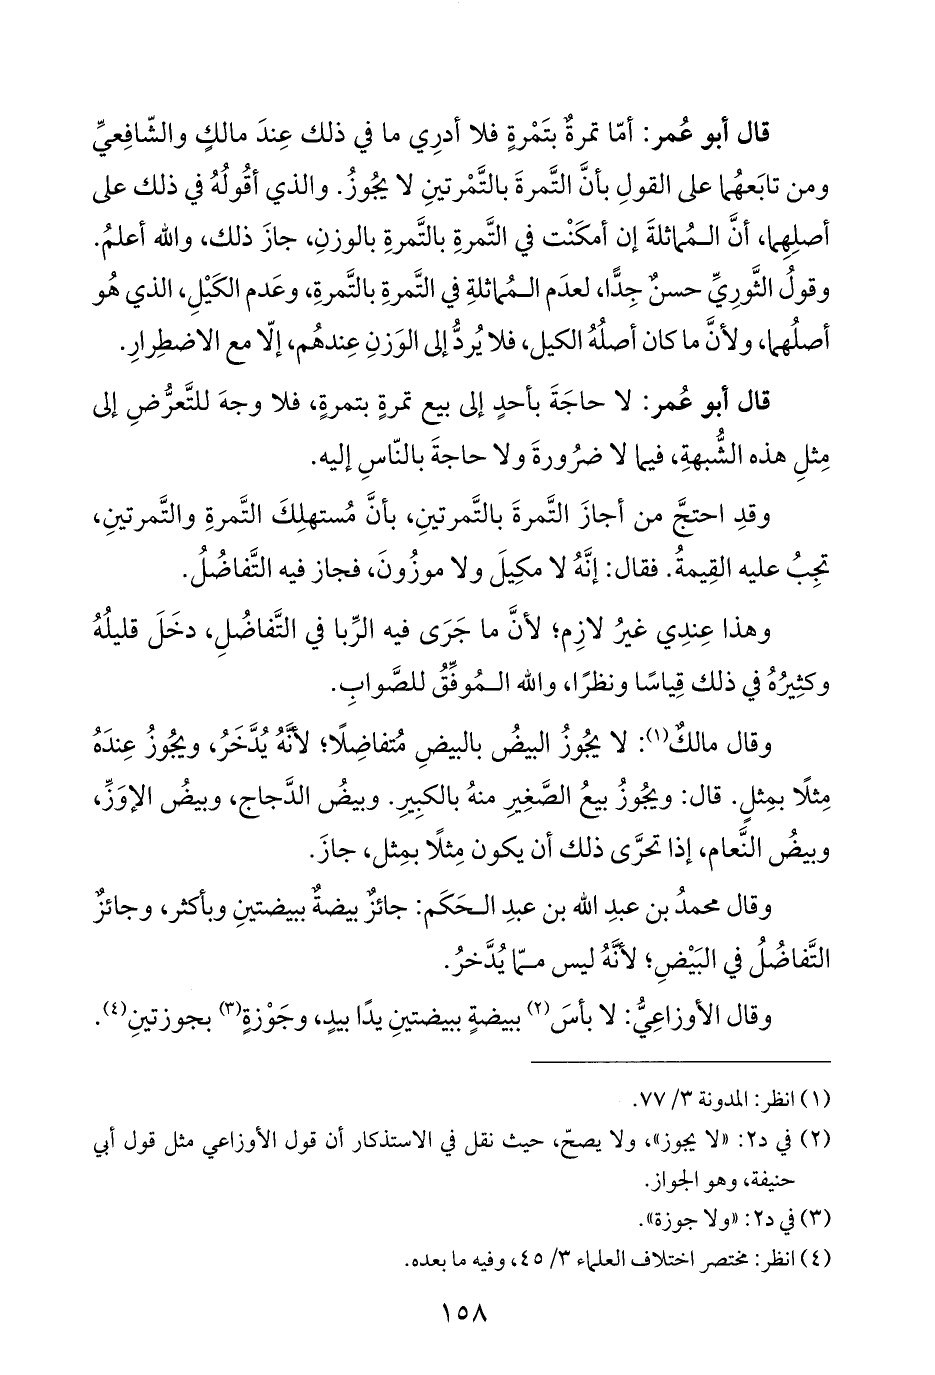 قال أبو عُمر: أمّا تمرةٌ بتَمْرةٍ فلا أدرِي ما في ذلك عِندَ مالكٍ والشّافِعيِّ
ومن تابَعهُما على القولِ بأنَّ التَّمرةَ بالتَّمْرتينِ لا يجُوزُ. والذي أقُولُهُ في ذلك على
أصلِهِما، أنَّ الـمُماثلةَ إن أمكَنْت في التَّمرةِ بالتَّمرةِ بالوزنِ، جازَ ذلك، والله أعلمُ.
وقولُ الثَّورِيِّ حسنٌ جِدًّا، لعدَم الـمُماثلةِ في التَّمرةِ بالتَّمرةِ، وعَدم الكَيْلِ، الذي هُو
أصلُهما، ولأنَّ ما كان أصلُهُ الكيل، فلا يُردُّ إلى الوَزنِ عِندهُم، إلّا مع الاضطِرارِ.
قال أبو عُمر: لا حاجَةَ بأحدٍ إلى بيع تمرةٍ بتمرةٍ، فلا وجهَ للتَّعرُّضِ إلى
مِثلِ هذه الشُّبهةِ، فيما لا ضرُورةَ ولا حاجةَ بالنّاسِ إليه.
وقدِ احتجَّ من أجازَ التَّمرةَ بالتَّمرتينِ، بأنَّ مُستهلِكَ التَّمرةِ والتَّمرتينِ،
تجِبُ عليه القِيمةُ. فقال: إنَّهُ لا مكِيلَ ولا موزُونَ، فجاز فيه التَّفاضُلُ.
وهذا عِندِي غيرُ لازِم؛ لأنَّ ما جَرَى فيه الرِّبا في التَّفاضُلِ، دخَلَ قليلُهُ
وكثِيرُهُ في ذلك قِياسًا ونظرًا، والله الـمُوفِّقُ للصَّوابِ.
وقال مالكٌ(١): لا يجُوزُ البيضُ بالبيضِ مُتفاضِلًا؛ لأنَّهُ يُدَّخَرُ، ويجُوزُ عِندَهُ
مِثلًا بمِثلٍ. قال: ويجُوزُ بيعُ الصَّغِيرِ منهُ بالكبِيرِ. وبيضُ الدَّجاج، وبيضُ الإوَزِّ،
وبيضُ النَّعام، إذا تحرَّى ذلك أن يكون مِثلًا بمِثل، جازَ.
وقال محمدُ بن عبدِ الله بن عبدِ الـحَكَم: جائزٌ بيضةٌ ببيضتينِ وبأكثر، وجائزٌ
التَّفاضُلُ في البَيْضِ؛ لأنَّهُ ليس مـمّا يُدَّخرُ.
وقال الأوزاعِيُّ: لا بأسَ(٢) ببيضةٍ ببيضتينِ يدًا بيدٍ، وجَوْزةٍ(٣) بجوزتينِ(٤).
(١) انظر: المدونة ٣/ ٧٧.
(٢) في د٢: «لا يجوز»، ولا يصحّ، حيث نقل في الاستذكار أن قول الأوزاعي مثل قول أبي
حنيفة، وهو الجواز.
(٣) في د٢: «ولا جوزة».
(٤) انظر: مختصر اختلاف العلماء ٣/ ٤٥، وفيه ما بعده.
١٥٨